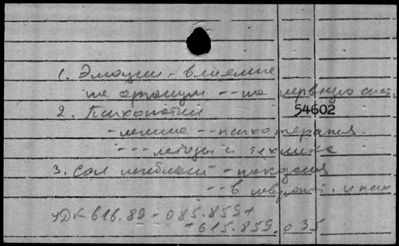 1. Эмоции - влияние
на организм -- на нервную сист.
2. Психопатии 54602
- лечение -- психотерапия
--- методы и техника
3. Сон лечебный - показания
-- в неврол. и псих.
УДК 616.89 - 085.859 +
+ 615.859.035